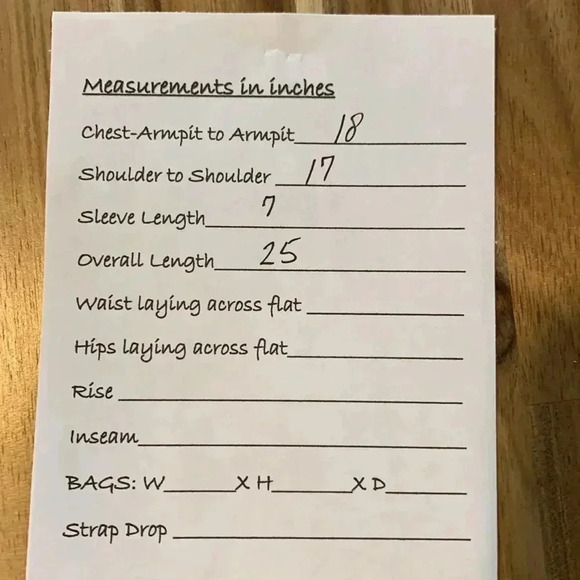 Measurements in inches
Chest-Armpit to Armpit 18
Shoulder to Shoulder 17
Sleeve Length 7
Overall Length 25
Waist laying across flat
Hips laying across flat
Rise
Inseam
BAGS: W______X H______X D______
Strap Drop